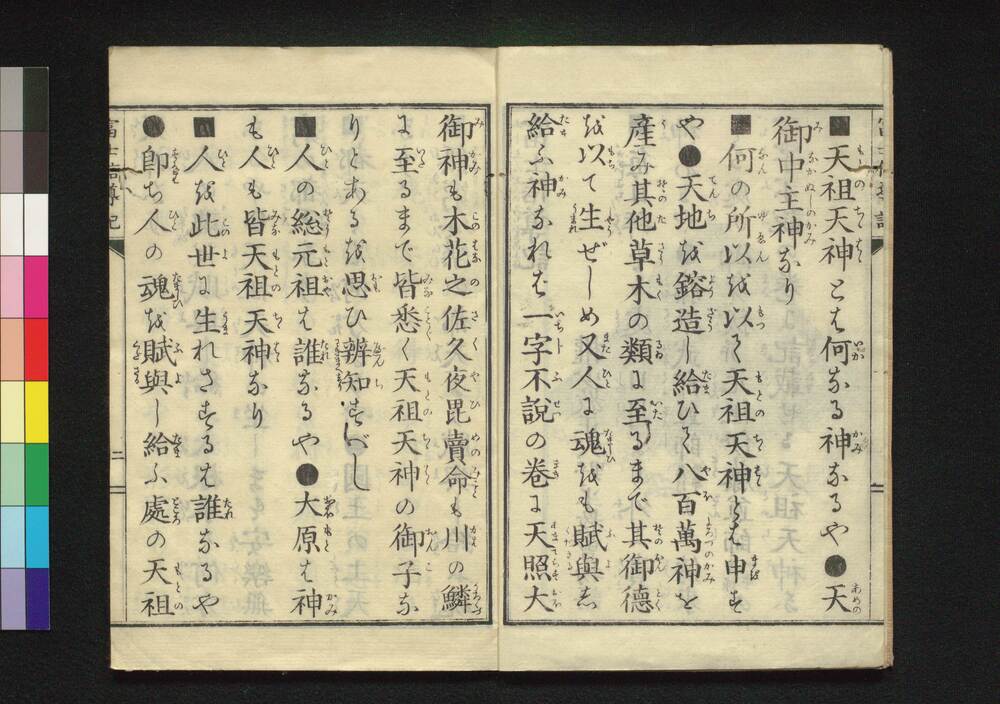 ■天祖天神とは何なる神なるや●天
御中主神なり
■何の所以を以て天祖天神とは申す
や●天地を鎔造し給ひて八百萬神を
産み其他草木の類に至るまで其御德
を以て生ぜしめ又人に魂をも賦與し
給ふ神なれば一字不說の卷に天照大
御神も木花之佐久夜毘賣命も川の鱗
に至るまで皆悉く天祖天神の御子な
りとあるを思ひ辨知すべし
■人の総元祖は誰なるや●大原は神
も人も皆天祖天神なり
■人を此世に生れさするは誰なるや
●卽ち人の魂を賦與し給ふ處の天祖
二